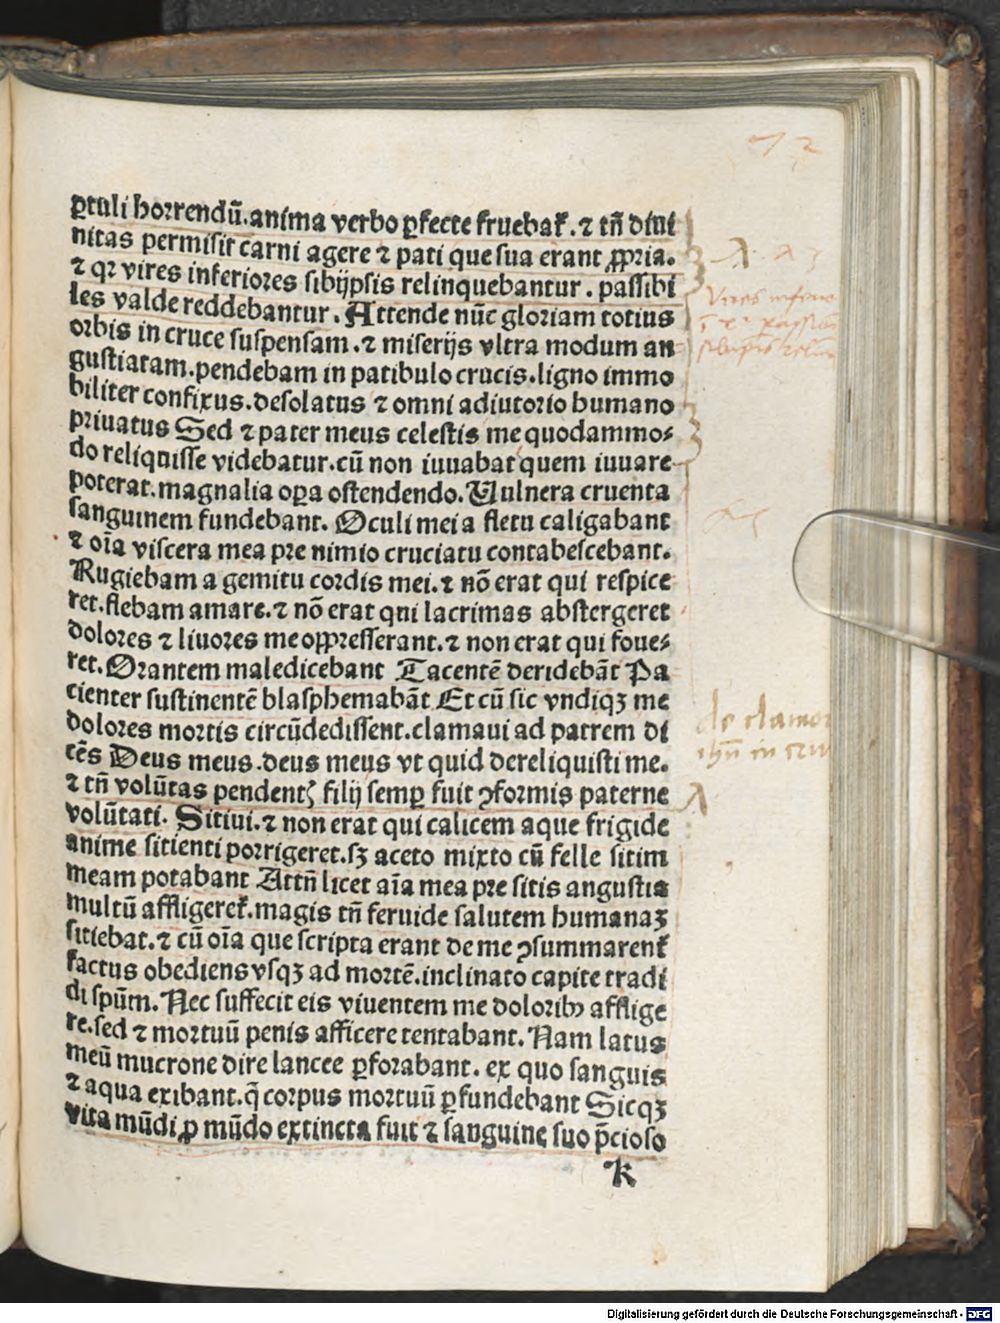 72
ꝑtuli horrendū.anima verbo ꝑfecte fruebat̄.⁊ tn̄ diui
nitas permisit carni agere ⁊ pati que sua erant ꝓpria.
⁊ qꝛ vires inferiores sibijpsis relinquebantur. passibi
les valde reddebantur. Attende nūc gloriam totius
orbis in cruce suspensam.⁊ miserijs vltra modum an
gustiatam.pendebam in patibulo crucis.ligno immo
biliter confixus.desolatus ⁊ omni adiutorio humano
priuatus Sed ⁊ pater meus celestis me quodammo⸗
do reliquisse videbatur.cū non iuuabat quem iuuare
poterat.magnalia oꝑa ostendendo.Uulnera cruenta
sanguinem fundebant. Oculi mei a fletu caligabant
⁊ oīa viscera mea pre nimio cruciatu contabescebant.
Rugiebam a gemitu cordis mei.⁊ nō erat qui respice
ret.flebam amare.⁊ nō erat qui lacrimas abstergeret
dolores ⁊ liuores me oppresserant.⁊ non erat qui foue⸗
ret.Orantem maledicebant Tacentē deridebāt Pa
cienter sustinentē blasphemabāt Et cū sic vndiqꝫ me
dolores mortis circūdedissent.clamaui ad patrem di
cēs Deus meus.deus meus vt quid dereliquisti me.
⁊ tn̄ volūtas pendentꝭ filij semꝑ fuit ꝯformis paterne
volūtati. Sitiui.⁊ non erat qui calicem aque frigide
anime sitienti porrigeret.sꝫ aceto mixto cū felle sitim
meam potabant Attn̄ licet aīa mea pre sitis angustia
multū affligeret̄.magis tn̄ feruide salutem humanaꝫ
sitiebat.⁊ cū oīa que scripta erant de me ꝯsummarent̄
factus obediens vsqꝫ ad mortē.inclinato capite tradi
di spūm. Nec suffecit eis viuentem me doloribꝰ afflige
re.sed ⁊ mortuū penis afficere tentabant. Nam latus
meū mucrone dire lancee ꝑforabant. ex quo sanguis
⁊ aqua exibant.q̄ corpus mortuū ꝑfundebant Sicqꝫ
vita mūdi ꝓ mūdo extincta fuit ⁊ sanguine suo p̄cioso
k
Vires inferio
de clamo
ihū in cru
Digitalisierung gefördert durch die Deutsche Forschungsgemeinschaft - DFG